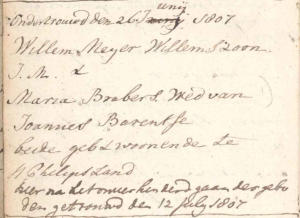 Ondertrouwd den 26 Junij 1807
Willem Meyer Willemszoon
J. M. &
Maria Brabers Wed van
Joannis Barentse
beide geb & woonende te
St Philips Land
hier na het onverhinderd gaan der gebo
den getrouwd den 12 July 1807